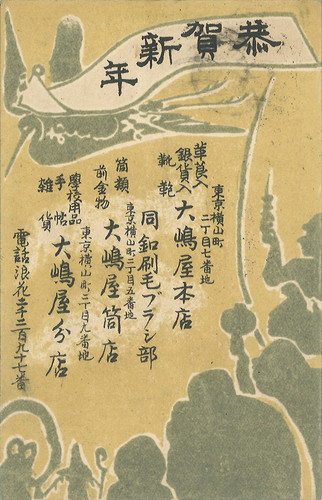 恭賀新年
革莨入
銀貨入
靴鞄
東京横山町
二丁目七番地
大嶋屋本店
同 釦刷毛ブラシ部
筒類
前金物
東京横山町二丁目五番地
大嶋屋筒店
學校用品
手帖
雑貨
東京横山町二丁目九番地
大嶋屋分店
電話浪花二千二百九十七番